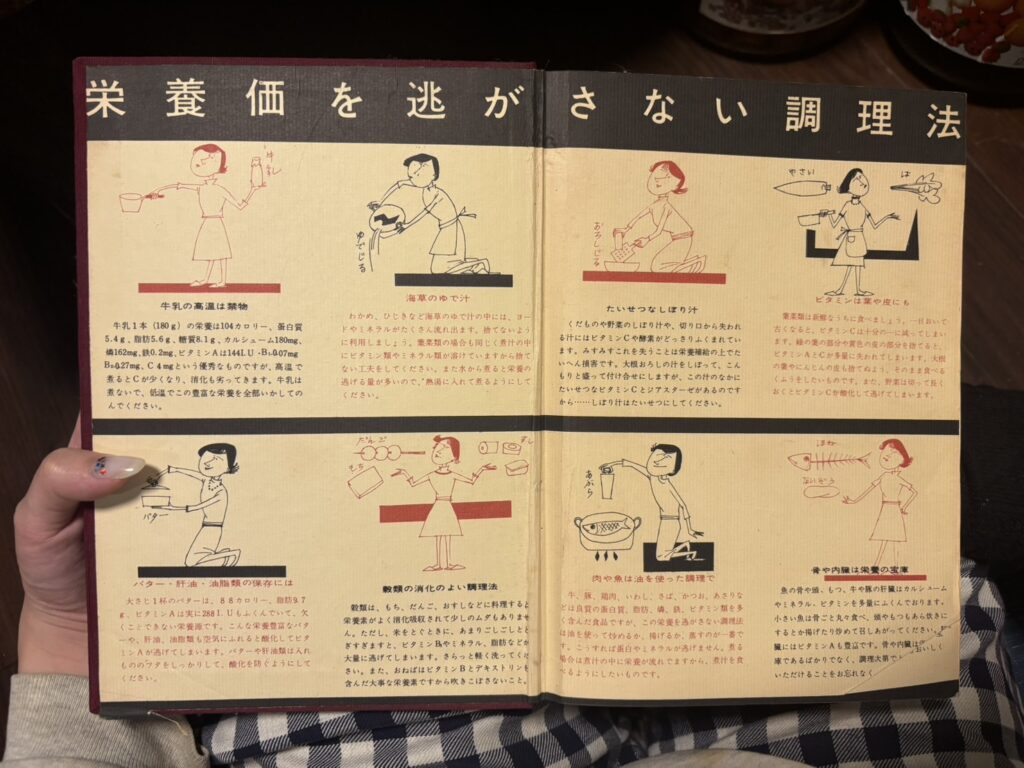 栄養価を逃がさない調理法
牛乳
牛乳の高温は禁物
牛乳1本（180g）の栄養は104カロリー、蛋白質
5.4g、脂肪5.6g、糖質8.1g、カルシューム180mg、
燐162mg、鉄0.2mg、ビタミンAは144I.U・B₁0.07mg
B₂0.27mg、C4mgという優秀なものですが、高温で
煮るとCが少くなり、消化も劣ってきます。牛乳は
煮ないで、低温でこの豊富な栄養を全部いかしての
んでください。
ゆでじる
海草のゆで汁
わかめ、ひじきなど海草のゆで汁の中には、ヨー
ドやミネラルがたくさん流れ出ます。捨てないよう
に利用しましょう。葉菜類の場合も同じく煮汁の中
にビタミン類やミネラル類が溶けていますから捨て
ない工夫をしてください。また水から煮ると栄養の
逃げる量が多いので、熱湯に入れて煮るようにして
ください。
おろしじる
たいせつなしぼり汁
くだものや野菜のしぼり汁や、切り口から失われ
る汁にはビタミンCや酵素がどっさりふくまれてい
ます。みすみすこれを失うことは栄養補給の上でた
いへん損害です。大根おろしの汁をしぼって、こん
もりと盛って付け合せにしますが、この汁のなかに
たいせつなビタミンCとジアスターゼがあるのです
から……しぼり汁はたいせつにしてください。
やさい
は
ビタミンは葉や皮にも
葉菜類は新鮮なうちに食べましょう。一日おいて
古くなると、ビタミンCは十分の一に減ってしまい
ます。緑の葉の部分や黄色の皮の部分を捨てると、
ビタミンAとCが多量に失われてしまいます。大根
の葉やにんじんの皮も捨てぬよう、そのまま食べる
くふうをしたいものです。また、野菜は切って長く
おくとビタミンCが酸化して逃げてしまいます。
バター
バター・肝油・油脂類の保存には
大さじ1杯のバターは、88カロリー、脂肪9.7
g、ビタミンAは実に288I.Uもふくんでいて、欠
くことできない栄養源です。こんな栄養豊富なバタ
ーや、肝油、油脂類も空気にふれると酸化してビタ
ミンAが逃げてしまいます。バターや肝油類は入れ
もののフタをしっかりして、酸化を防ぐようにして
ください。
だんご
すし
もち
穀類の消化のよい調理法
穀類は、もち、だんご、おすしなどに料理すると
栄養素がよく消化吸収されて少しのムダもありませ
ん。ただし、米をとぐときに、あまりごしごしと
とぎすぎますと、ビタミンB₁やミネラル、脂肪などが
大量に逃げてしまいます。さらっと軽く洗ってくだ
さい。また、おねばはビタミンBとデキストリンを
含んだ大事な栄養素ですから吹きこぼさないこと。
あぶら
肉や魚は油を使った調理で
牛、豚、鶏肉、いわし、さば、かつお、あさりな
どは良質の蛋白質、脂肪、燐、鉄、ビタミン類を多
く含んだ食品ですが、この栄養を逃がさない調理法
は油を使って炒めるか、揚げるか、蒸すのが一番で
す。こうすれば蛋白やミネラルが逃げません。煮る
場合は煮汁の中に栄養が流れてますから、煮汁を食
べるようにしたいものです。
ほね
ないぞう
骨や内臓は栄養の宝庫
魚の骨や頭、もつ、牛や豚の肝臓はカルシューム
やミネラル、ビタミンを多量にふくんでおります。
小さい魚は骨ごと丸々食べ、頭やもつもあら炊きに
するとか揚げたり炒めて召しあがってください。
臓にはビタミンAも豊富です。骨や内臓
庫であるばかりでなく、調理次第で おいしく
いただけることをお忘れなく